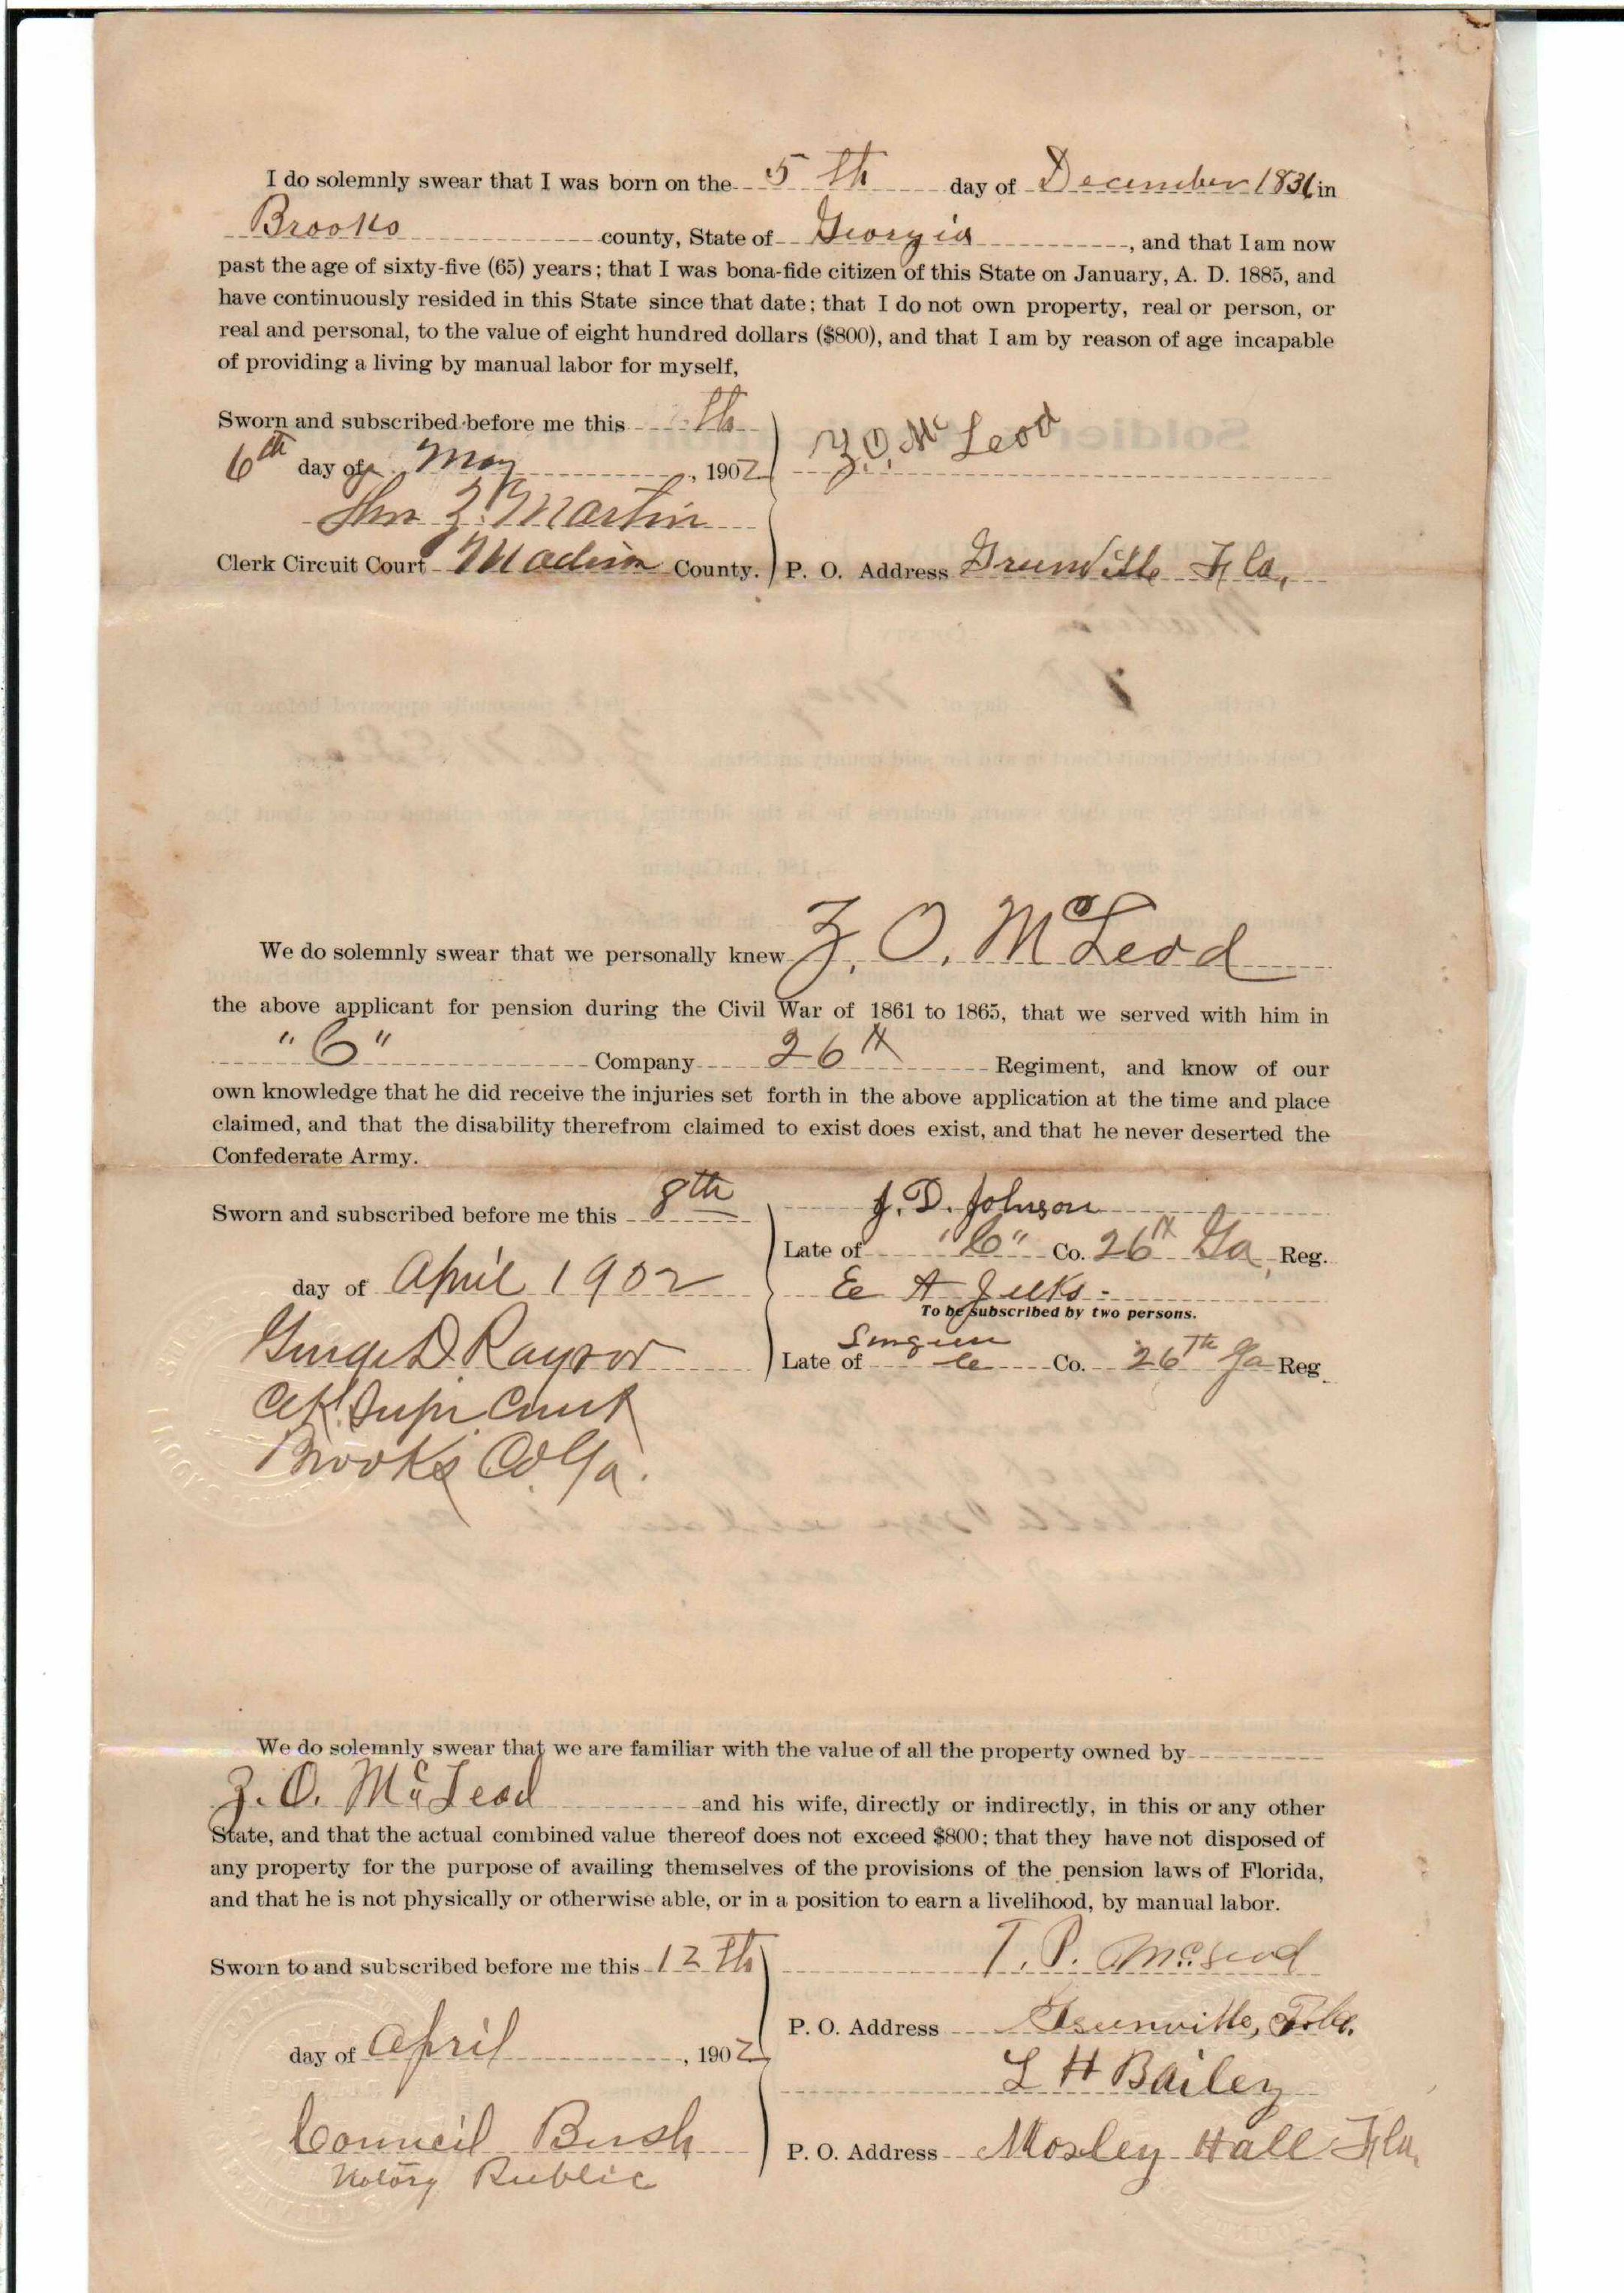 I do solemnly swear that I was born on the 5 th day of December 1831 in
Brooks county, State of Georgia, and that I am now
past the age of sixty-five (65) years; that I was bona-fide citizen of this State on January, A. D. 1885, and
have continuously resided in this State since that date; that I do not own property, real or person, or
real and personal, to the value of eight hundred dollars ($800), and that I am by reason of age incapable
of providing a living by manual labor for myself,
Sworn and subscribed before me this th
6th day of May, 1902
Z. O. Mc Leod
Martin
Clerk Circuit Court Madison County.
P. O. Address Fla,
We do solemnly swear that we personally knew Z. O. McLeod
the above applicant for pension during the Civil War of 1861 to 1865, that we served with him in
"C" Company 26th Regiment, and know of our
own knowledge that he did receive the injuries set forth in the above application at the time and place
claimed, and that the disability therefrom claimed to exist does exist, and that he never deserted the
Confederate Army.
Sworn and subscribed before me this 8th
day of April 1902
George D. Raysor
Clk Supr Court
Brooks Co Ga.
J. D. Johnson
Late of "C" Co. 26th Ga Reg.
E A Jelks
To be subscribed by two persons.
Late of Co. 26th Ga Reg
We do solemnly swear that we are familiar with the value of all the property owned by
Z. O. McLeod and his wife, directly or indirectly, in this or any other
State, and that the actual combined value thereof does not exceed $800; that they have not disposed of
any property for the purpose of availing themselves of the provisions of the pension laws of Florida,
and that he is not physically or otherwise able, or in a position to earn a livelihood, by manual labor.
Sworn to and subscribed before me this 12 th
day of April, 1902
Council Bush
Notary Public
T. P. McLeod
P. O. Address Fla.
L H Bailey
P. O. Address Mosley Hall Fla.